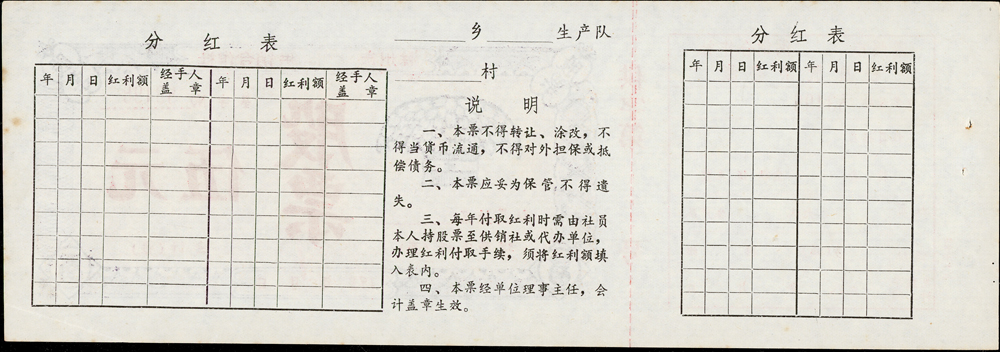 分 红 表
年 月 日 红利额 经手人盖章 年 月 日 红利额 经手人盖章
乡 生产队
村
说 明
一、本票不得转让、涂改,不
得当货币流通,不得对外担保或抵
偿债务。
二、本票应妥为保管不得遗
失。
三、每年付取红利时需由社员
本人持股票至供销社或代办单位,
办理红利付取手续,须将红利额填
入表内。
四、本票经单位理事主任,会
计盖章生效。
分 红 表
年 月 日 红利额 年 月 日 红利额
股票
伍元